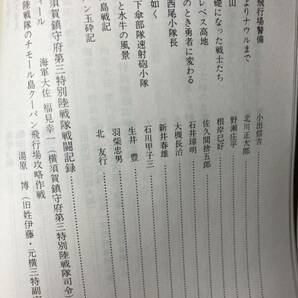 飛行場警備 小出信吉
よりナウルまで 北川正太郎
山 野瀬庄平
礎になった戦士たち 根岸巳好
レベス高地 佐久間捨五郎
のとき勇者に変わる 石井璋明
西尾小隊長 大槻長治
如く 新井春雄
下傘部隊速射砲小隊 石川甲子三
と水牛の風景 生井 豊
島戦記 羽柴忠男
ン玉砕記 北 友行
須賀鎮守府第三特別陸戦隊戦闘記録
ール 海軍大佐 福見幸一（横須賀鎮守府第三特別陸戦隊司令
陸戦隊のチモール島クーパン飛行場攻略作戦
湯原 博（旧姓伊藤・元横三特副